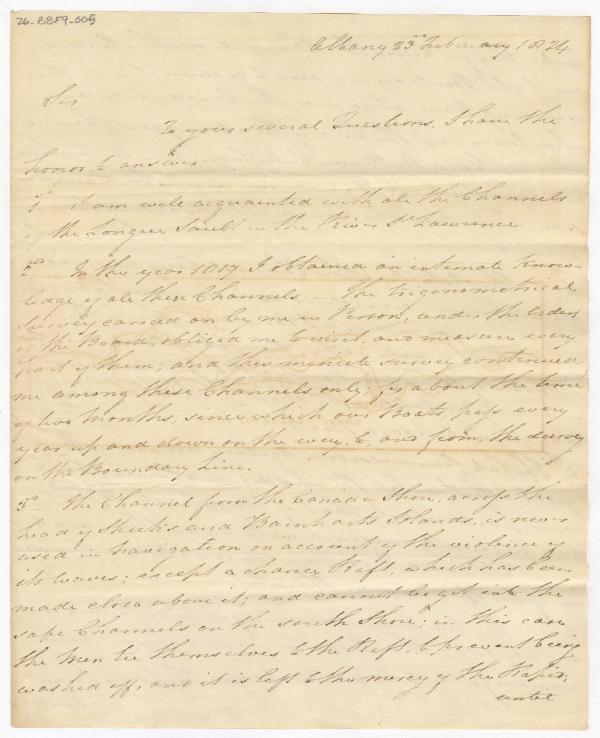 26-B8F9-005
Albany 23rd February 1824
Sir
To your several Questions, I have the
honor to answer
1st I am well acquainted with all the Channels
of the Longue Sault in the River St Lawrence.
2nd In the year 1817 I obtained an intimate know-
ledge of all these Channels — The trigonometrical
survey carried on by me in Person, under the Orders
of the Board, obliged me to visit, and measure every
part of them; and this minute survey continued
me among these Channels only, for about the time
of two months, since which our Boats, pass every
year up and down on the way to, and from, the survey
on the Boundary Line.
3rd The Channel from the Canada Shore, across the
head of Sheeks and Barnharts Islands, is never
used in navigation on account of the violence of
its waves; except a chance Raft, which has been
made close above it, and cannot be got into the
safe Channels on the south Shore; in this case
the Men tie themselves to the Raft, to prevent being
washed off, and it is left to the mercy of the Rapid,
until